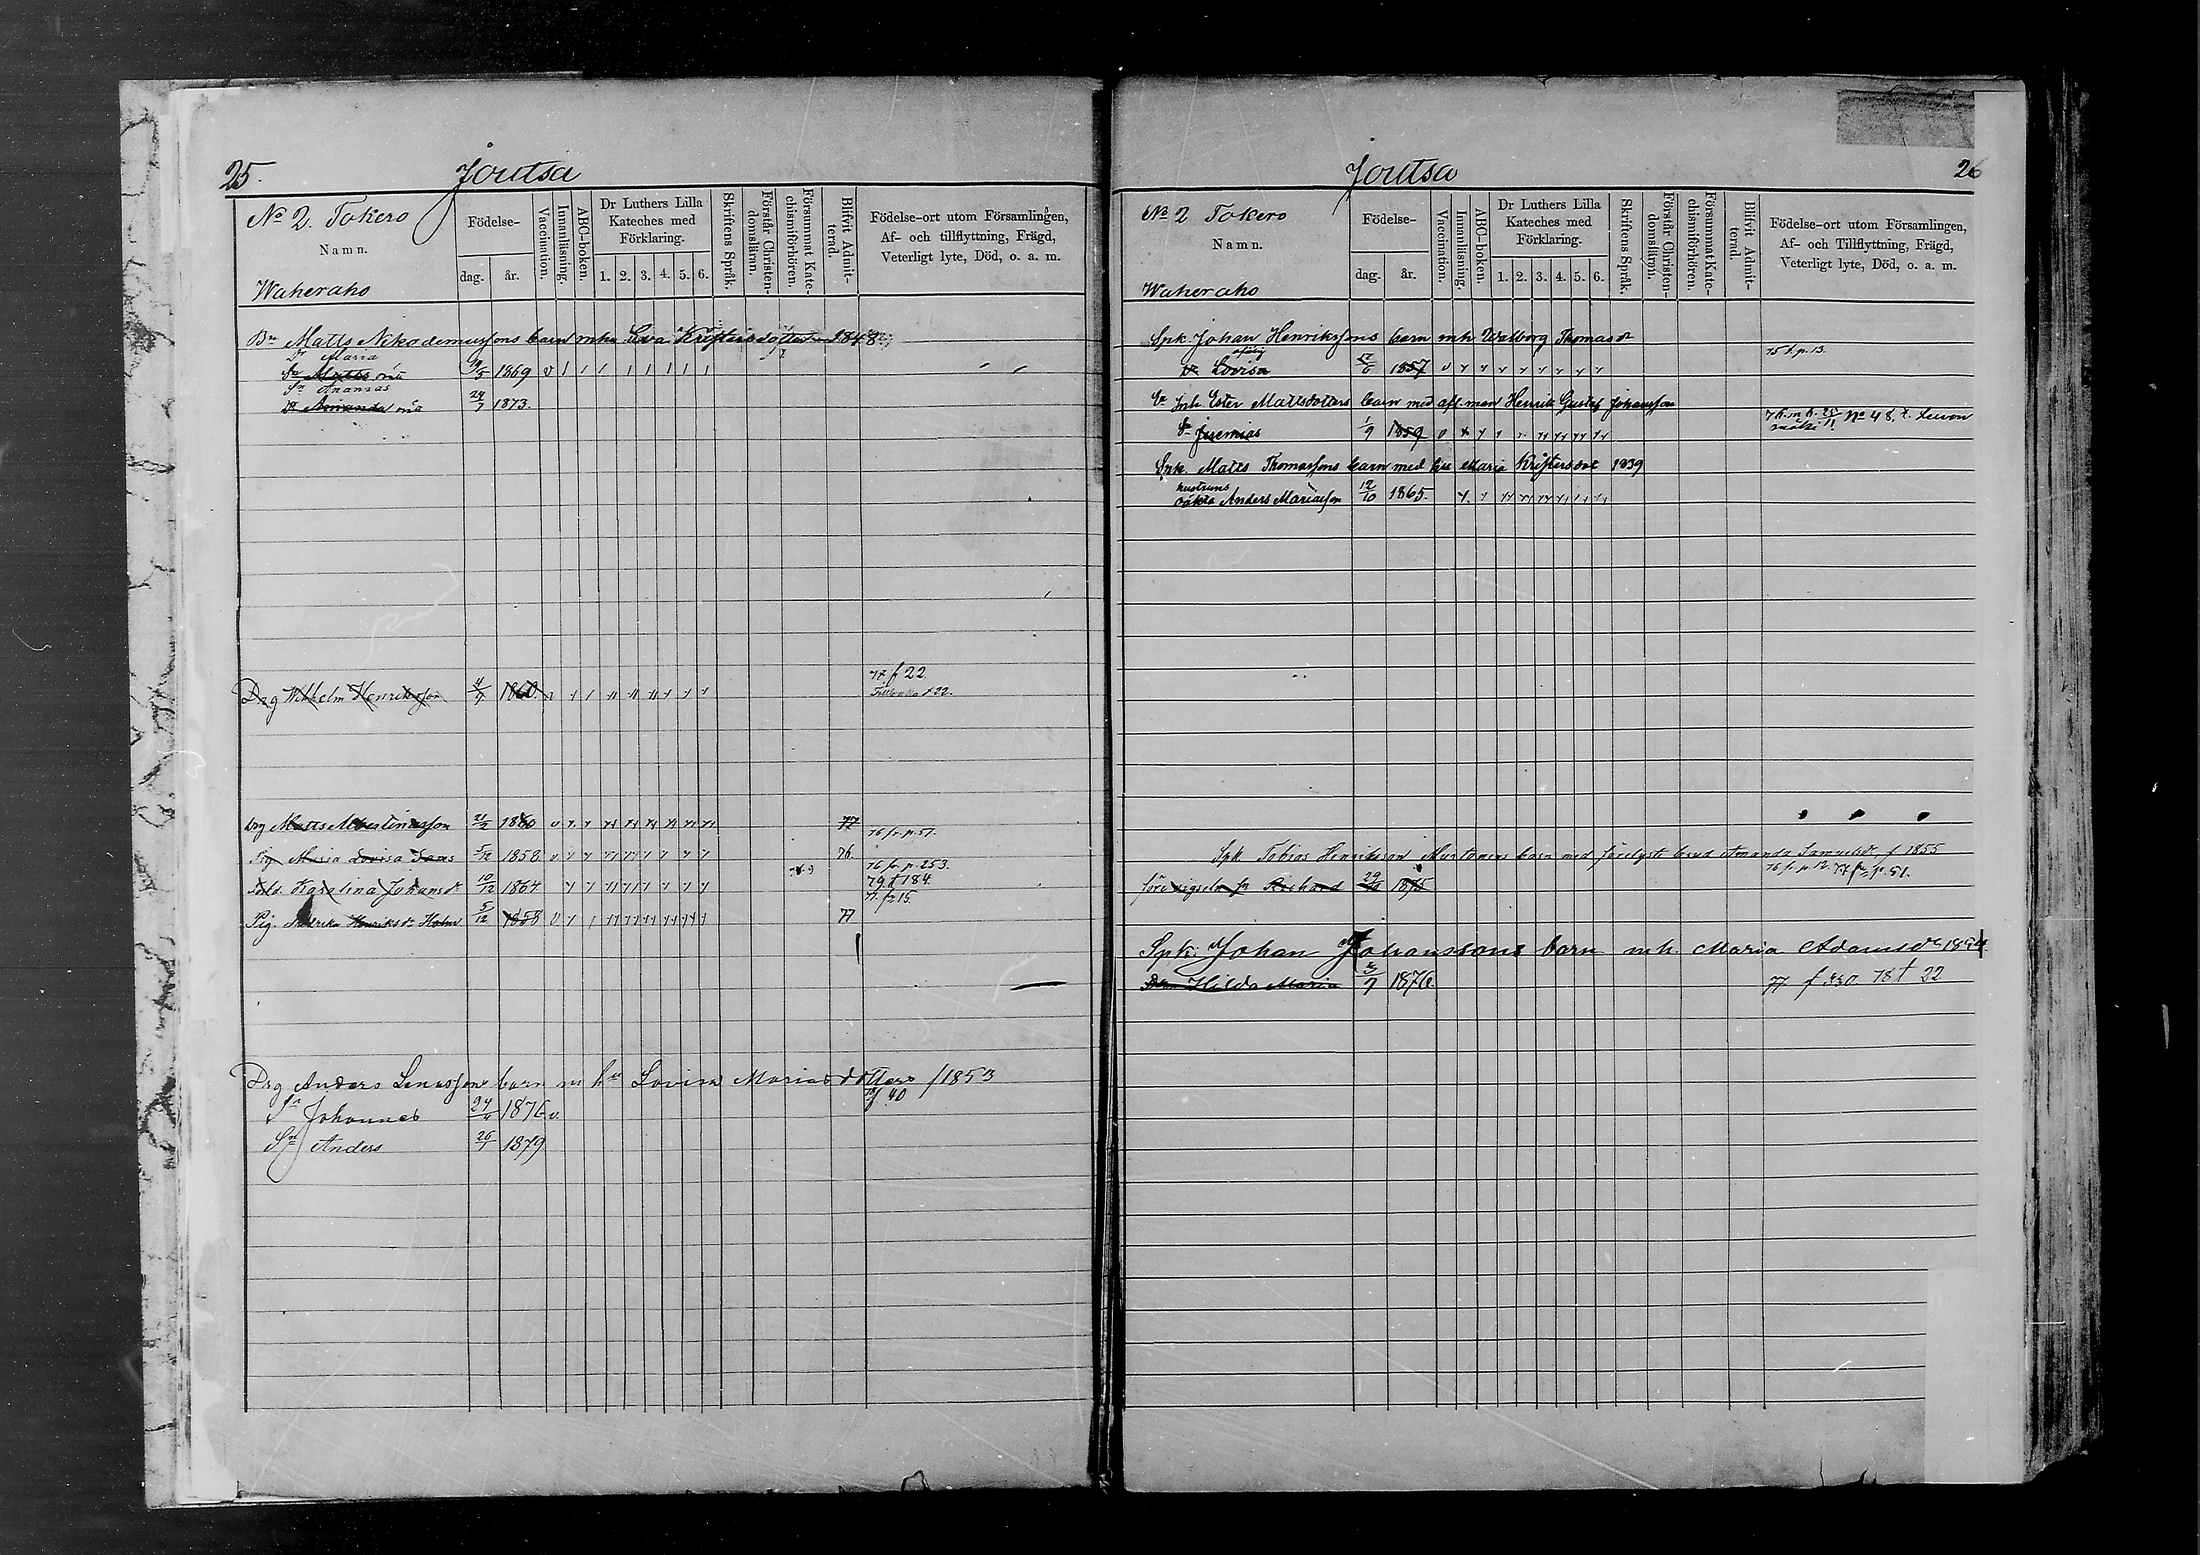 25. Joutsa
No 2. Tokero
Namn.
Waheraho
Födelse-
dag. år.
Vaccination.
Innanläsning.
ABC-boken.
Dr Luthers Lilla Kateches med Förklaring.
1. 2. 3. 4. 5. 6.
Skriftens Språk.
Förstår Christendomsläran.
Försummat Katechismiförhören.
Blifvit Admitterad.
Födelse-ort utom Församlingen,
Af- och tillflyttning, Frägd,
Veterligt lyte, Död, o. a. m.
Bn Matts Nikodemussons barn m hu Eva Kristersdotter 1848
Dr Maria
Sn Matts 1869 v
Sn Ananias
Dr Amanda 24/7 1873.
f 22.
Drg Wilhelm Henriksson 4/7 1860.
Tillbaka f 22.
Drg Matts Albertinasson 21/2 1860 77
76 fr. p. 51.
Pig Maria Lovisa 5/12 1858 76.
76 fr. p. 253.
Karolina Johansdr 10/12 1864 79 † 184.
77. f 215.
Pig. Fredrika Henriksdr Holm 5/12 1858 77
Drg Anders Linusson barn m hu Lovisa Mariasdotters /1853
f 40
Sn Johannes 24/ 1876 v.
Sn Anders 26/1 1879
Joutsa 26
No 2 Tokero
Namn.
Waheraho
Födelse-
dag. år.
Vaccination.
Innanläsning.
ABC-boken.
Dr Luthers Lilla Kateches med Förklaring.
1. 2. 3. 4. 5. 6.
Skriftens Språk.
Förstår Christendomsläran.
Försummat Katechismiförhören.
Blifvit Admitterad.
Födelse-ort utom Församlingen,
Af- och Tillflyttning, Frägd,
Veterligt lyte, Död, o. a. m.
Spk Johan Henrikssons barn mh Walborg Thomasdr
75 f. p. 13.
Dr Lovisa 1857
Inh Ester Mattsdotters barn med afl. man Henrik Gustaf Johansson
Sn Jeremias 1/9 1859 No 48.
Spk. Matts Thomassons barn med hu Maria Kristersdr 1839
hustruns
oäkta Anders Mariasson 12/10 1865.
Spk. Tobias Henriksson Murtonens barn med förelysta brud Amanda Samuelsdr f 1855
76 fr. p. 12. 77 fr p. 51.
Richard 29/10 1875
Spk: Johan Johanssons barn m h. Maria Adamsdr
Dr Hilda Maria 1876. 77. f 220. 78 † 22